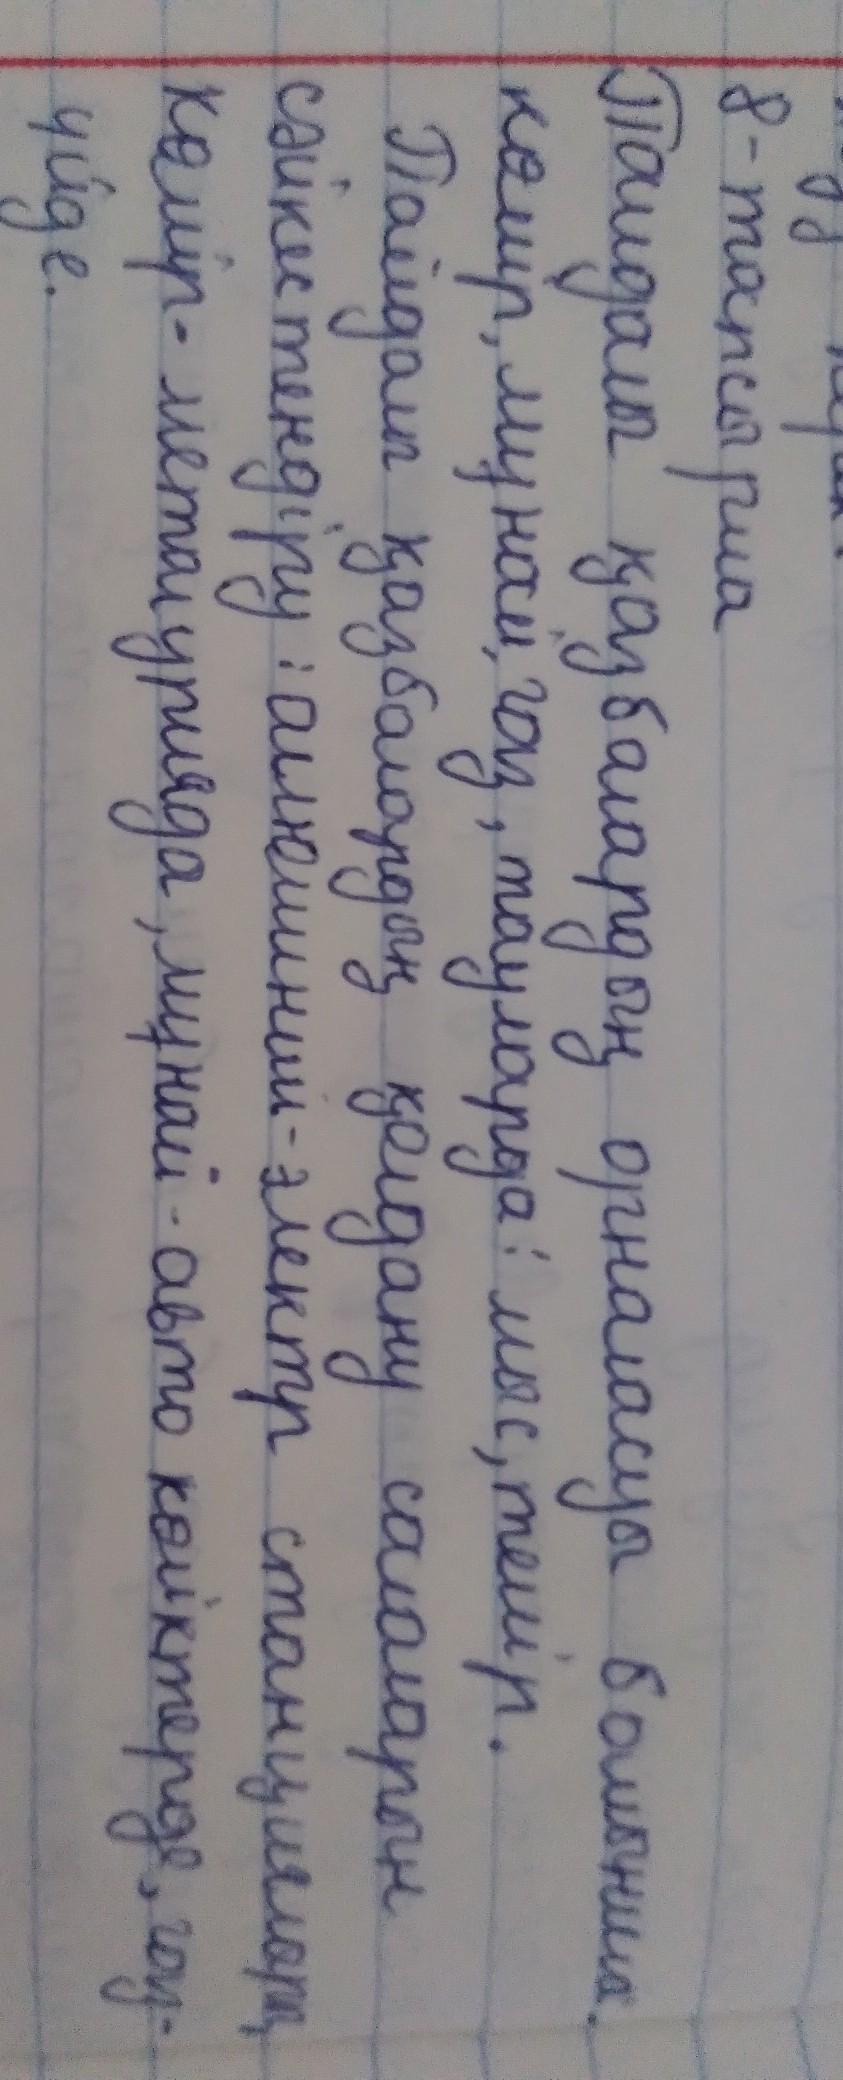 8-тапсырма
Пайдалы қазбалардың орналасуы бойынша.
көмір, мұнай, газ, тауларда: мыс, темір.
Пайдалы қазбалардың қолдану салаларын
сәйкестендіру: алюминий-электр станциялары,
көмір- металурияда, мұнай-авто көліктерде, газ-
үйде.